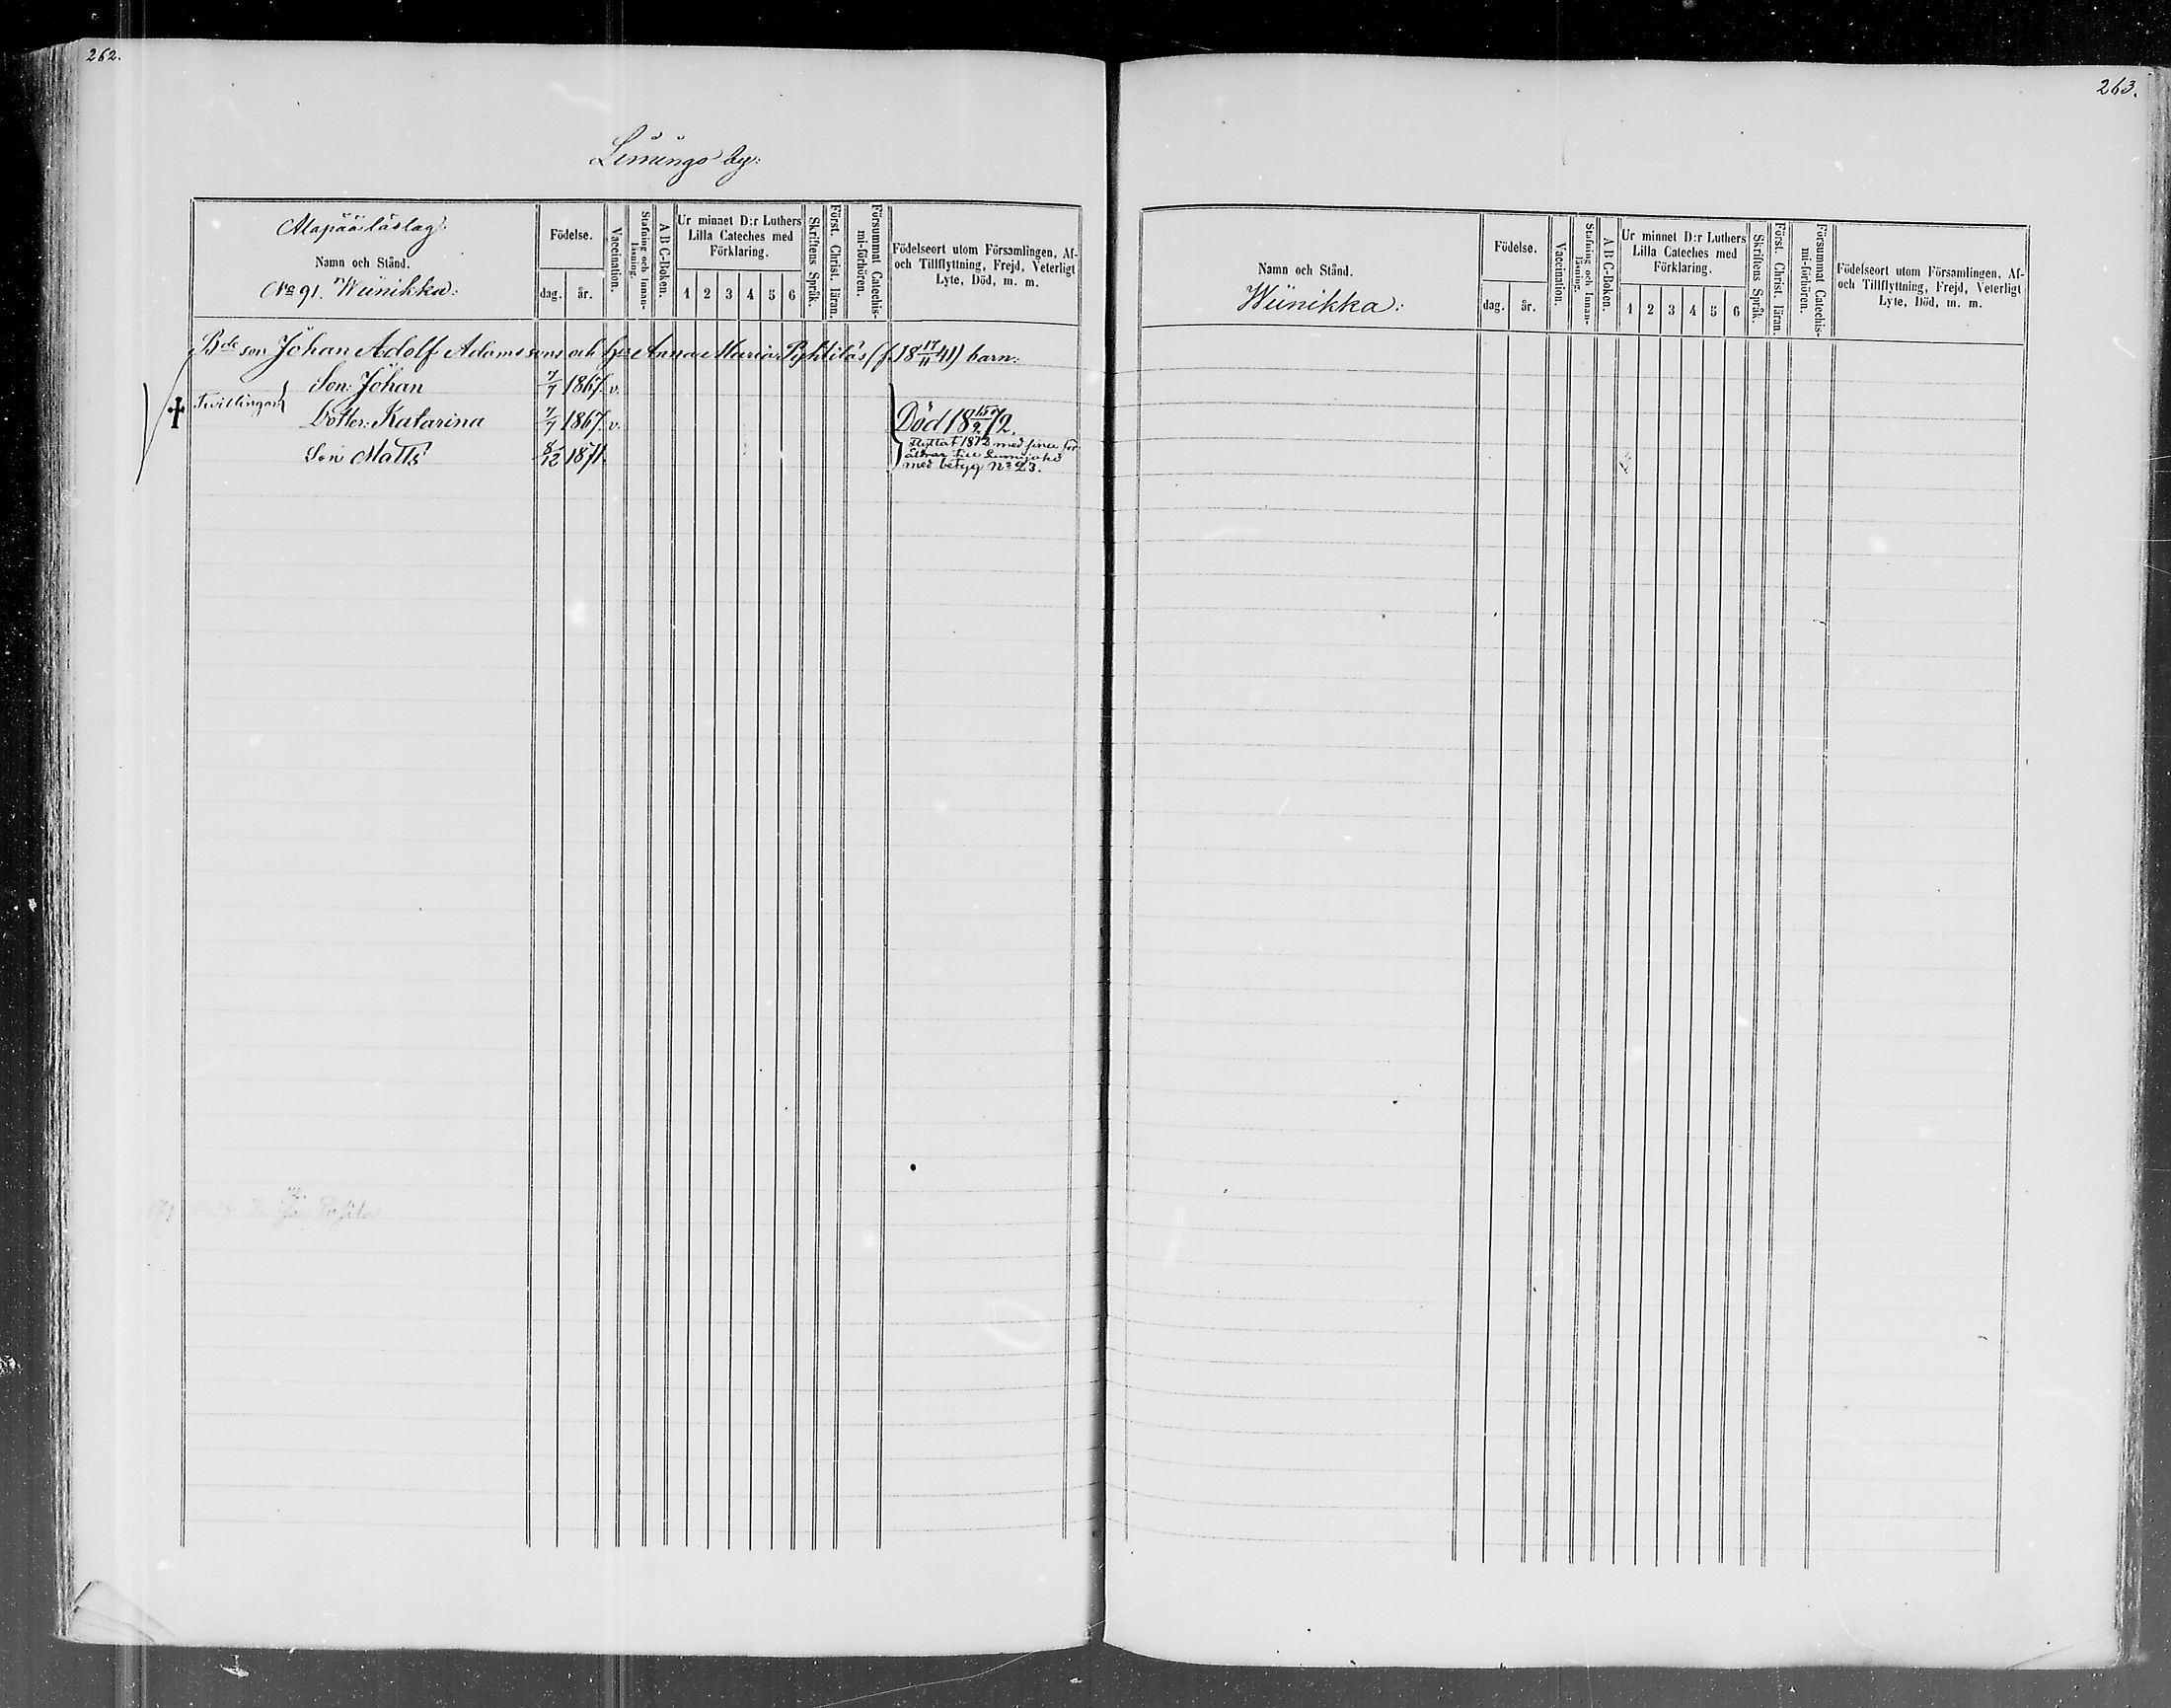 262.
by:
Alapäälaslag.
Namn och Stånd.
No 91. Wiinikka:
Födelse.
dag. år.
Vaccination.
Stafning och Innan-
läsning.
A B C-Boken.
Ur minnet D:r Luthers
Lilla Cateches med
Förklaring.
1 2 3 4 5 6
Skriftens Språk.
Först. Christ. läran.
Försummat Catechis-
mi-förhören.
Födelseort utom Församlingen, Af-
och Tillflyttning, Frejd, Veterligt
Lyte, Död, m. m.
Bde son Johan Adolf Adamssons och Anna Maria Pyhtiläs (f. 18 17/11 41) barn:
Son: Johan 7/7 1867. v.
Tvillingar
Dotter: Katarina 7/7 1867. v. Död 18 15/2 72.
Son Matts 8/12 1871.
Flyttat 1872 med sina för-
äldrar till Lumijoki
med betyg No 23.
263.
Namn och Stånd.
Wiinikka:
Födelse.
dag. år.
Vaccination.
Stafning och Innan-
läsning.
A B C-Boken.
Ur minnet D:r Luthers
Lilla Cateches med
Förklaring.
1 2 3 4 5 6
Skriftens Språk.
Först. Christ. läran.
Försummat Catechis-
mi-förhören.
Födelseort utom Församlingen, Af-
och Tillflyttning, Frejd, Veterligt
Lyte, Död, m. m.